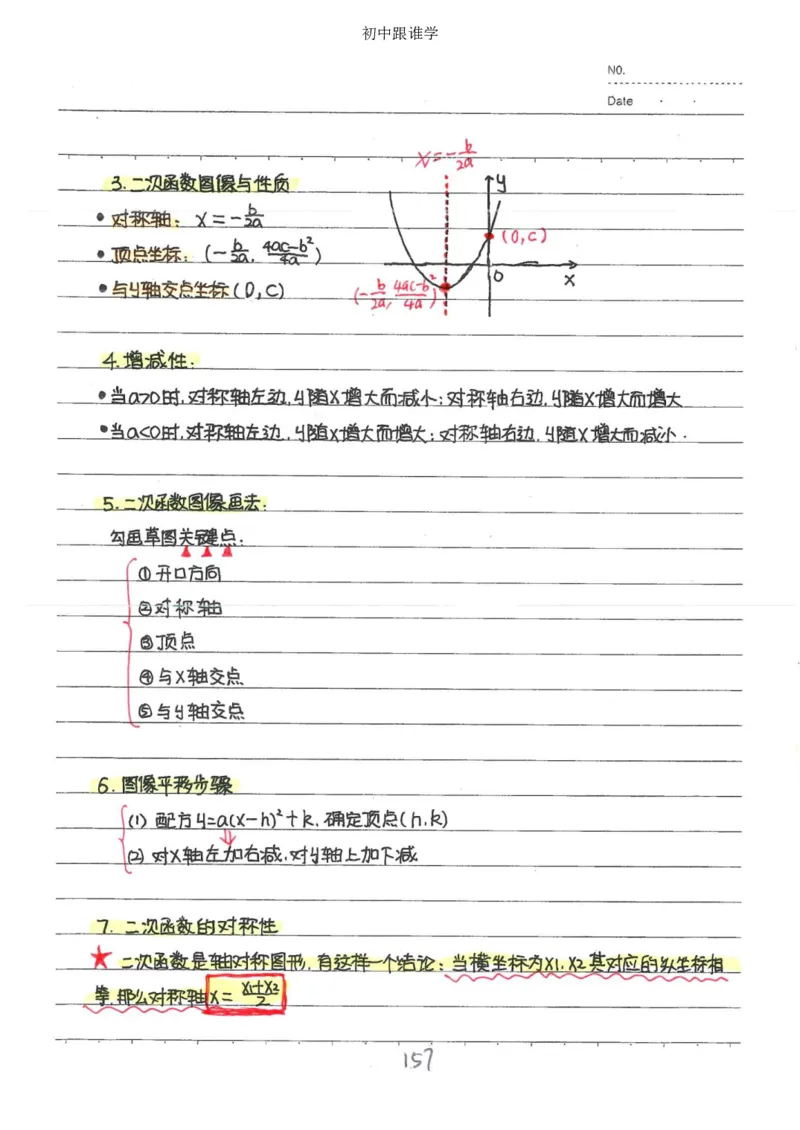 初中跟谁学
NO.
Date · ·
3.二次函数图像与性质
• 对称轴: x=-b/2a
• 顶点坐标: (-b/2a, 4ac-b²/4a)
• 与y轴交点坐标(0,C)
x=-b/2a
y
(0,C)
0
x
(-b/2a, 4ac-b²/4a)
4.增减性:
•当a>0时,对称轴左边,y随x增大而减小;对称轴右边,y随x增大而增大
•当a<0时,对称轴左边,y随x增大而增大;对称轴右边,y随x增大而减小.
5.二次函数图像画法:
勾画草图关键点:
①开口方向
②对称轴
③顶点
④与x轴交点
⑤与y轴交点
6.图像平移步骤
(1) 配方y=a(x-h)²+k,确定顶点(h,k)
(2) 对x轴左加右减,对y轴上加下减
7. 二次函数的对称性
★ 二次函数是轴对称图形,有这样一个结论:当横坐标为x1,x2其对应的纵坐标相
等,那么对称轴x= x1+x2/2
157